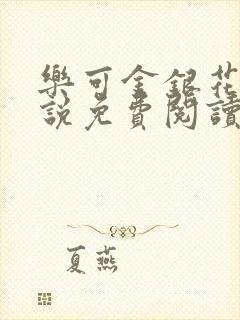 樂可金銀花
說免費閱讀
夏燕